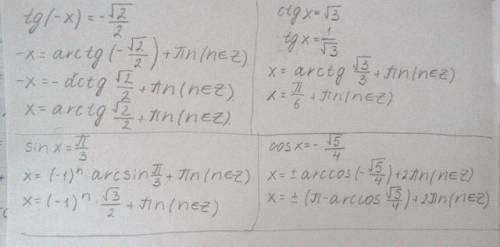 tg(-x) = -√2/2
-x = arctg(-√2/2) + πn (n∈Z)
-x = -arctg √2/2 + πn (n∈Z)
x = arctg √2/2 + πn (n∈Z)
ctg x = √3
tg x = 1/√3
x = arctg √3/3 + πn (n∈Z)
x = π/6 + πn (n∈Z)
sin x = π/3
x = (-1)ⁿ · arcsin π/3 + πn (n∈Z)
x = (-1)ⁿ · √3/2 + πn (n∈Z)
cos x = -√5/4
x = ± arccos(-√5/4) + 2πn (n∈Z)
x = ± (π - arccos √5/4) + 2πn (n∈Z)